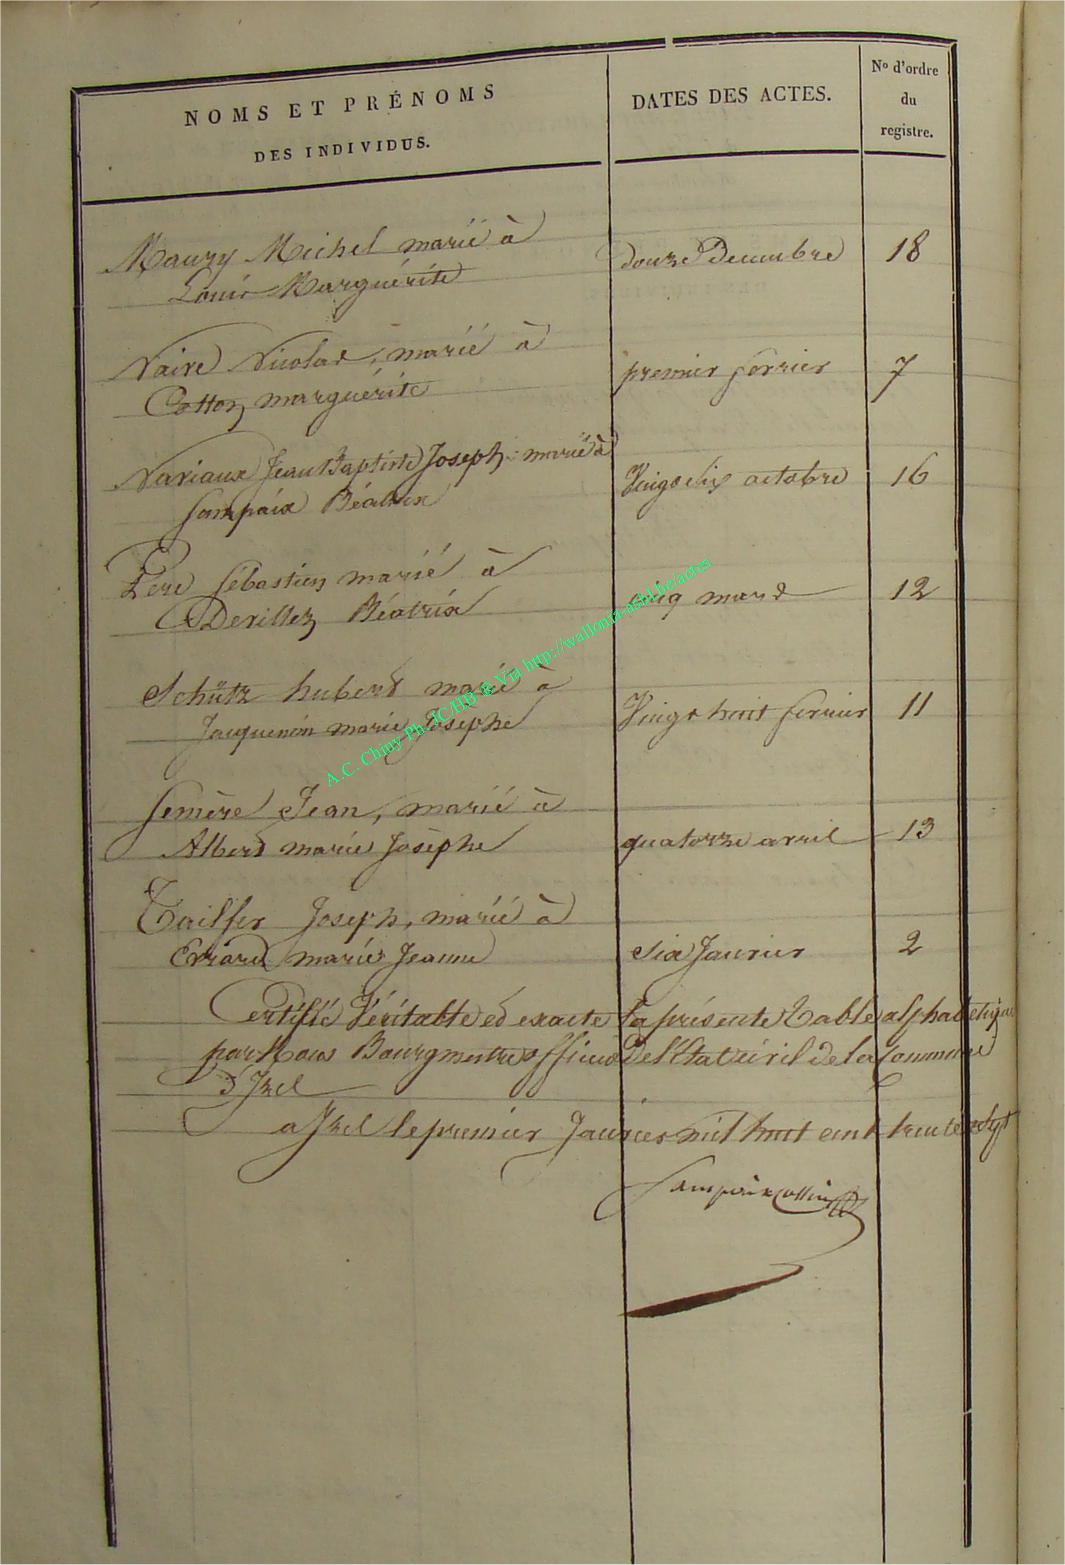 NOMS ET PRÉNOMS
DES INDIVIDUS.
DATES DES ACTES.
Nº d'ordre
du
registre.
Maury Michel marié à
Louis Marguérite douze Decembre 18
Naire Nicolas, marié à
Cotton marguérite premier ferrier 7
Nariaux Jean Baptiste Joseph marié à
Sampaix Béatrix Vingt six octobre 16
Père Sébastien marié à
Derillez Béatrix cinq mars 12
Schütz hubert marié à
Jacquemin marie Josephe Vingt huit ferrier 11
Semère Jean, marié à
Albert marie Josèphe quatorze avril 13
Tailfer Joseph, marié à
Errard marie Jeanne Six Janvier 2
Certifié Véritable et exacte la présente Table alphabetique
par Nous Bourgmestre officier de l'Etat civil de la Commune
d'Izel
a Izel le premier Janvier mil huit cent trente sept
Sampaix Collin
A.C. Chiny Ph. JC/HB & Via http://wallonia-asbl.be/actes